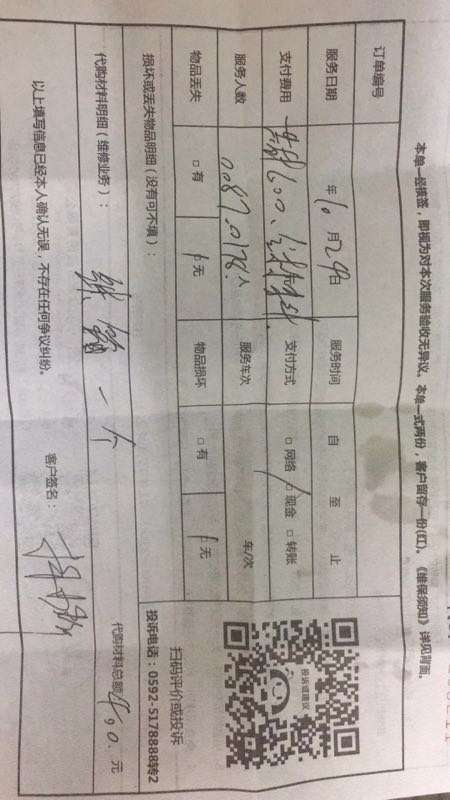 本单一经核签，即视为对本次服务验收无异议。本单一式两份，客户留存一份(红)。《维保须知》详见背面。
订单编号
服务日期 年10月29日 服务时间 自 至 止
支付费用 支付方式 □网络 □现金 □转账
服务人数 0087.0178.人 服务车次 车/次
物品丢失 □有 无 物品损坏 □有 无
损坏或丢失物品明细（没有可不填）：
代购材料明细（维修业务）： 一个
代购材料总额 元
以上填写信息已经本人确认无误，不存在任何争议纠纷。
客户签名：
投诉或建议
扫码评价或投诉
投诉电话：0592-5178888转2